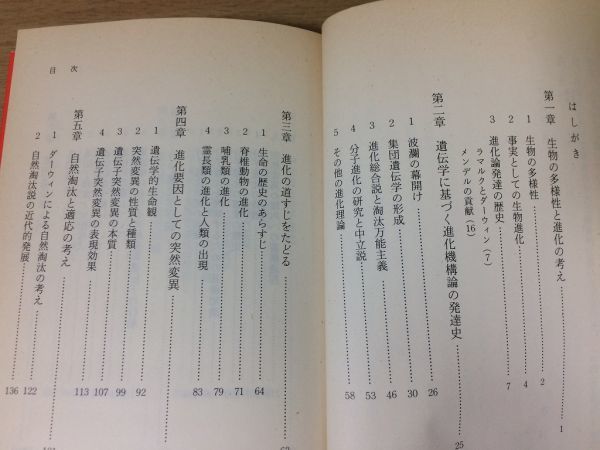 はしがき
第一章 生物の多様性と進化の考え……1
1 生物の多様性……2
2 事実としての生物進化……4
3 進化論発達の歴史……7
ラマルクとダーウィン(7)
メンデルの貢献(16)
第二章 遺伝学に基づく進化機構論の発達史……25
1 波瀾の幕開け……26
2 集団遺伝学の形成……30
3 進化総合説と淘汰万能主義……46
4 分子進化の研究と中立説……53
5 その他の進化理論……58
目次
第三章 進化の道すじをたどる……63
1 生命の歴史のあらすじ……64
2 脊椎動物の進化……71
3 哺乳類の進化……79
4 霊長類の進化と人類の出現……83
第四章 進化要因としての突然変異
1 遺伝学的生命観……92
2 突然変異の性質と種類……99
3 遺伝子突然変異の本質……107
4 遺伝子突然変異の表現効果……113
第五章 自然淘汰と適応の考え
1 ダーウィンによる自然淘汰の考え……122
2 自然淘汰説の近代的発展……136